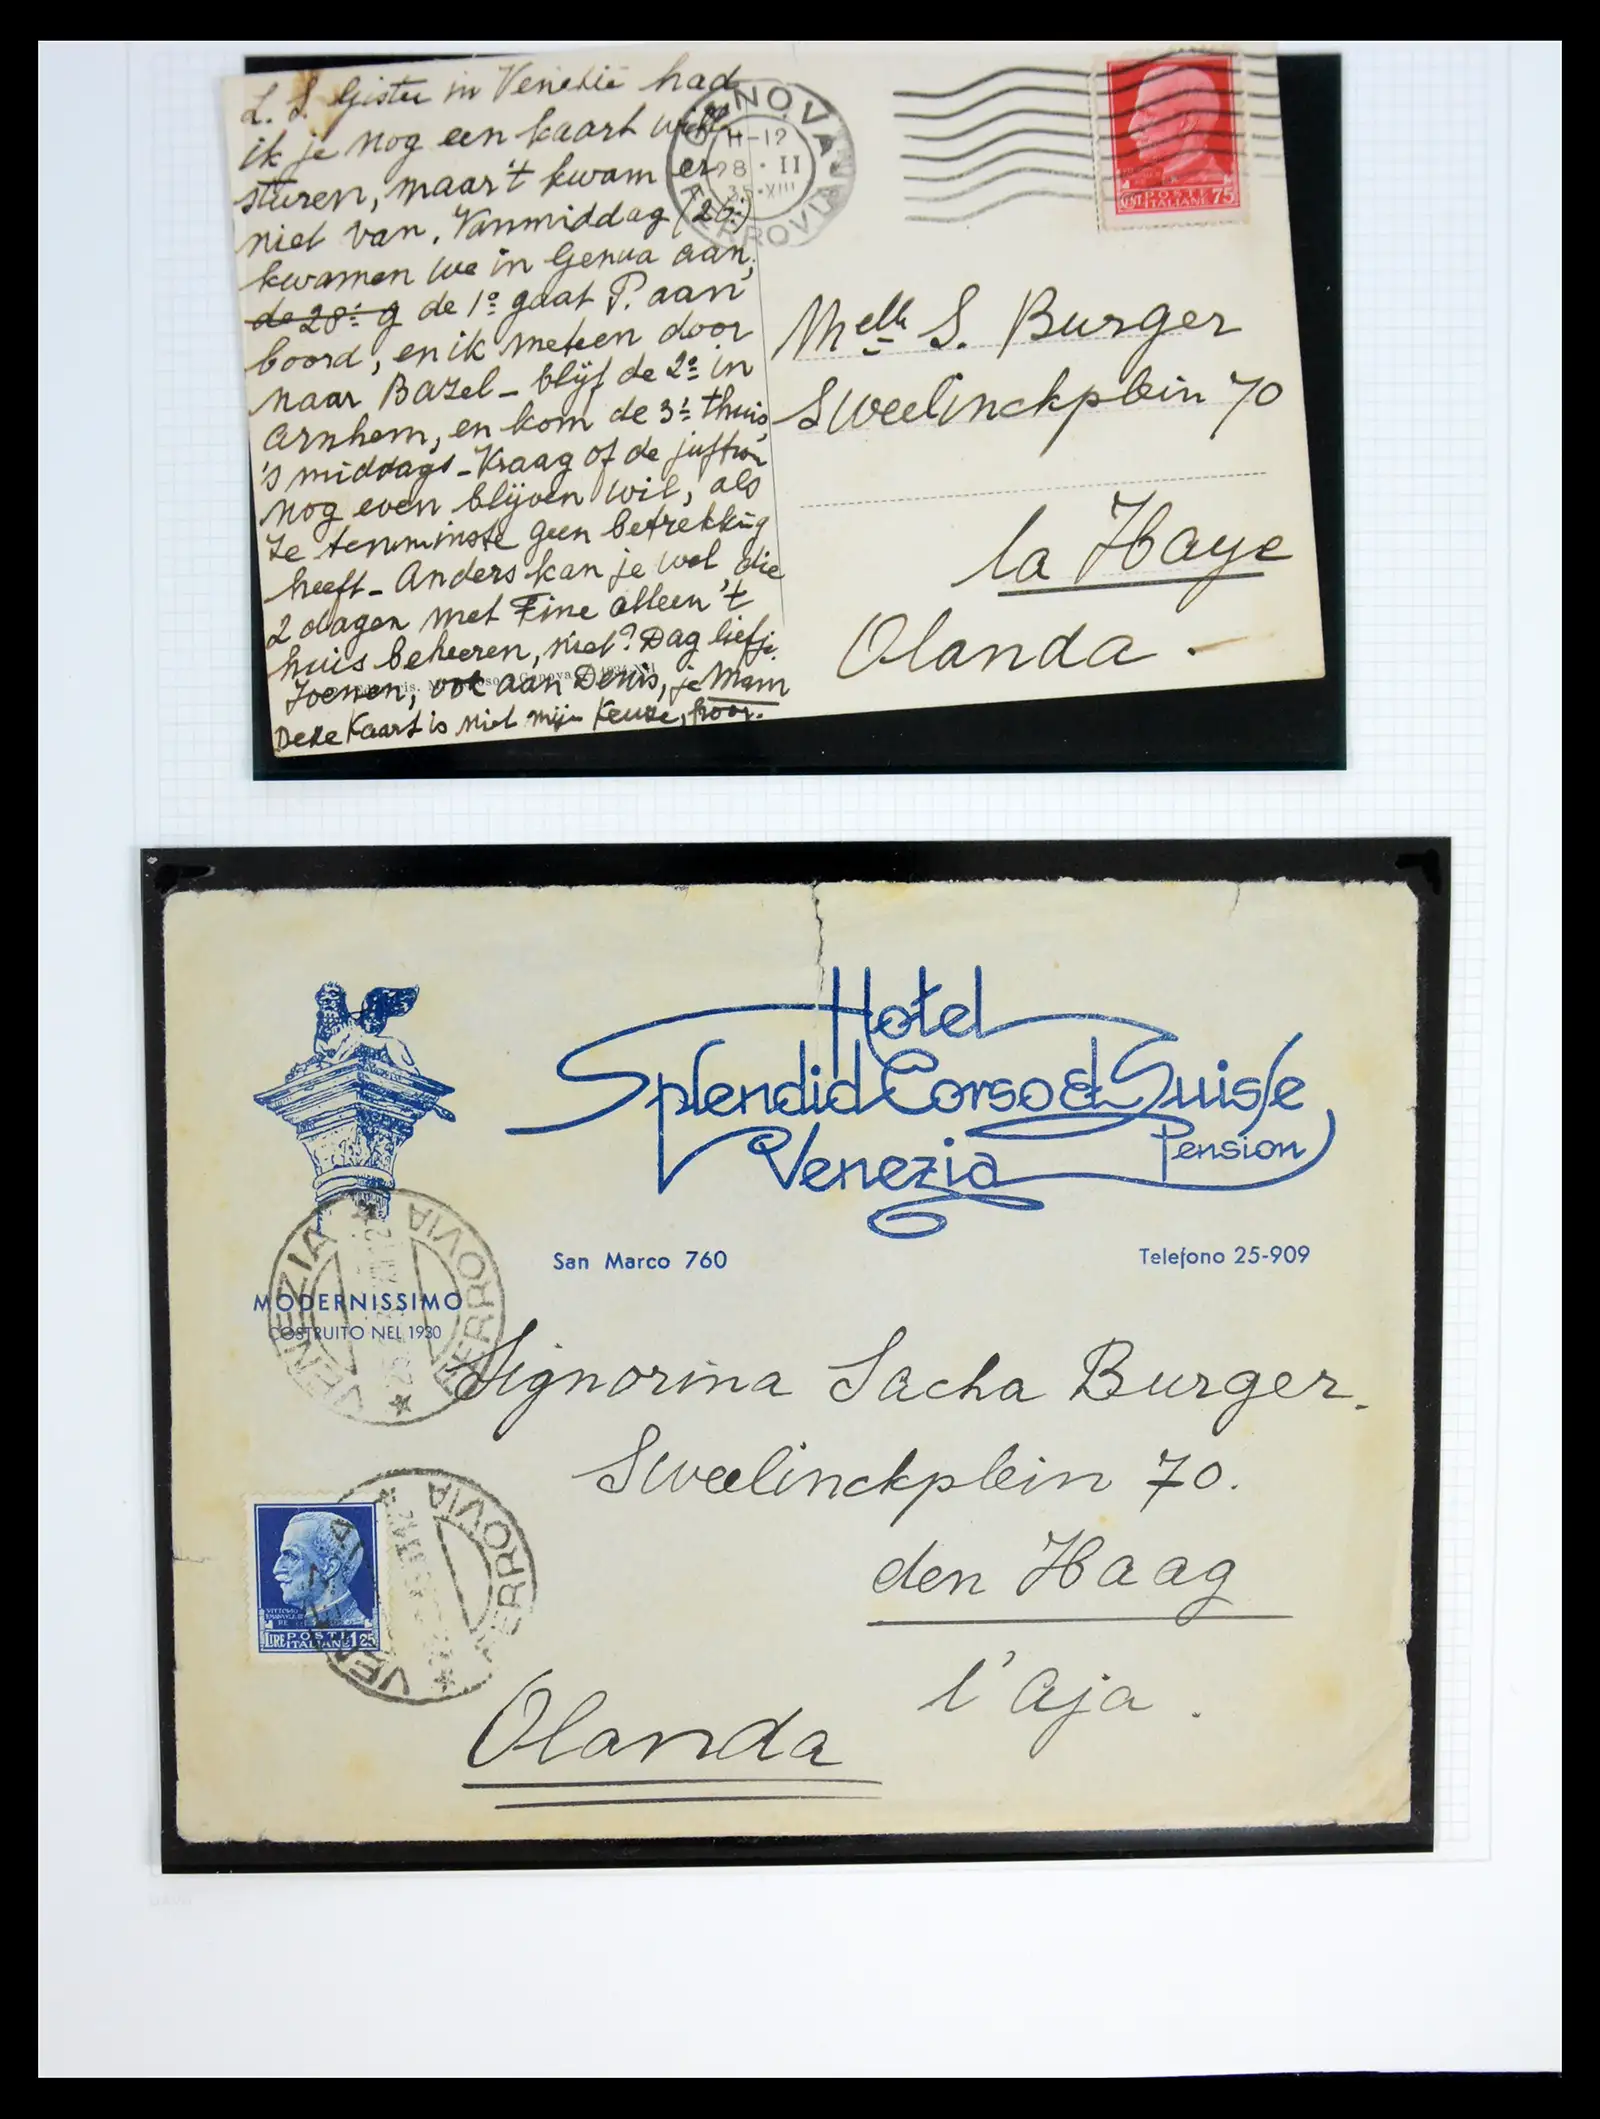 L. S. Gister in Venetië had
ik je nog een kaart will
sturen, maar 't kwam er
niet van. Vanmiddag (26:)
kwamen we in Genua aan,
de 28: g de 1e gaat P. aan
boord, en ik meteen door
naar Bazel - blijf de 2e in
Arnhem, en kom de 3e thuis,
's middags - Vraag of de juffrou
nog even blijven wil, als
ze tenminste geen betrekking
heeft - Anders kan je wel, die
2 dagen met Fine alleen 't
huis beheeren, niet? Dag liefje
Zoenen, ook aan Denis, je Mam
Deze Kaart is niet mijn Keuze, hoor.
GENOVA
11-12
28 · II
35·XIII
FERROVIA
CENT POSTE 75
ITALIANE
Melle S. Burger
Sweelinckplein 70
la Haye
Olanda -
Hotel
Splendid Corso & Suisse
Venezia Pension
San Marco 760
Telefono 25-909
MODERNISSIMO
COSTRUITO NEL 1930
VENEZIA FERROVIA
Signorina Sacha Burger.
Sweelinckplein 70.
den Haag
l'Aja.
Olanda
VITTORIO
EMANUELE III
RE
LIRE POSTE 1,25
ITALIANE
VENEZIA FERROVIA